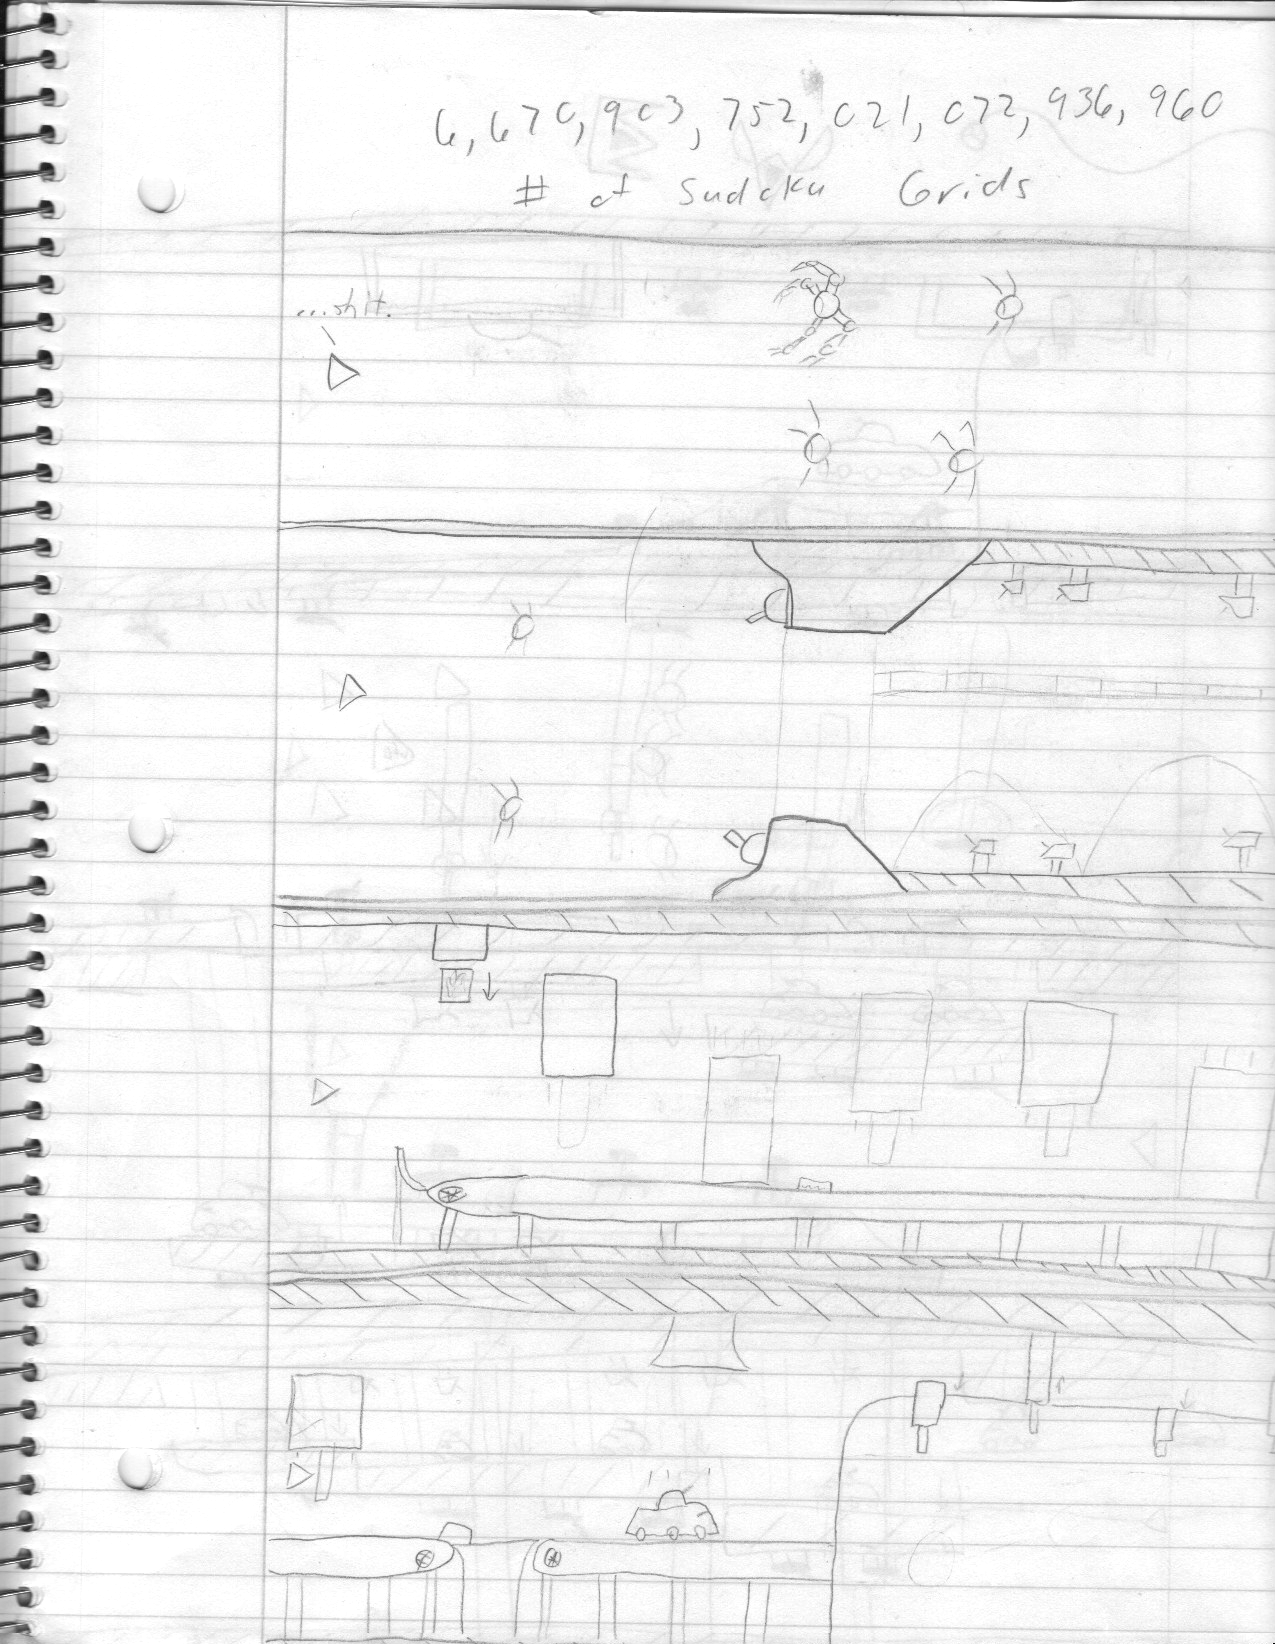 6,670,903,752,021,072,936,960
# of Sudoku Grids
...shit.